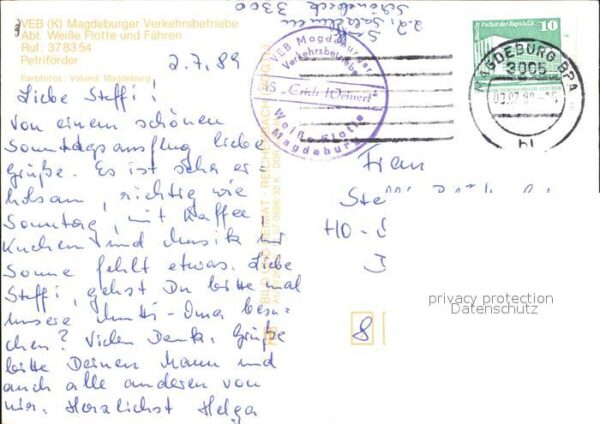 VEB (K) Magdeburger Verkehrsbetriebe
Abt. Weiße Flotte und Fähren
Ruf: 3 78 3 54
Petriförder
Farbfotos: Volland, Magdeburg
2.7.89
Liebe Steffi!
Von einem schönen
Sonntagsausflug liebe
Grüße. Es ist sehr er
holsam, richtig wie
Sonntag, mit Kaffee
Kuchen und Musik nur
Sonne fehlt etwas. Liebe
Steffi, gehst Du bitte mal
unsere Mutti-Oma besu-
chen? Vielen Dank. Grüße
bitte Deinen Mann und
auch alle anderen von
mir. Herzlichst Helga
z.Z.
Schönebeck 3300
VEB Magdeburger
Verkehrsbetriebe
MS „Erich Weinert"
Weiße Flotte
Magdeburg
10
MAGDEBURG BPA
3005
bl
Frau
Ste
HO-
8
privacy protection
Datenschutz